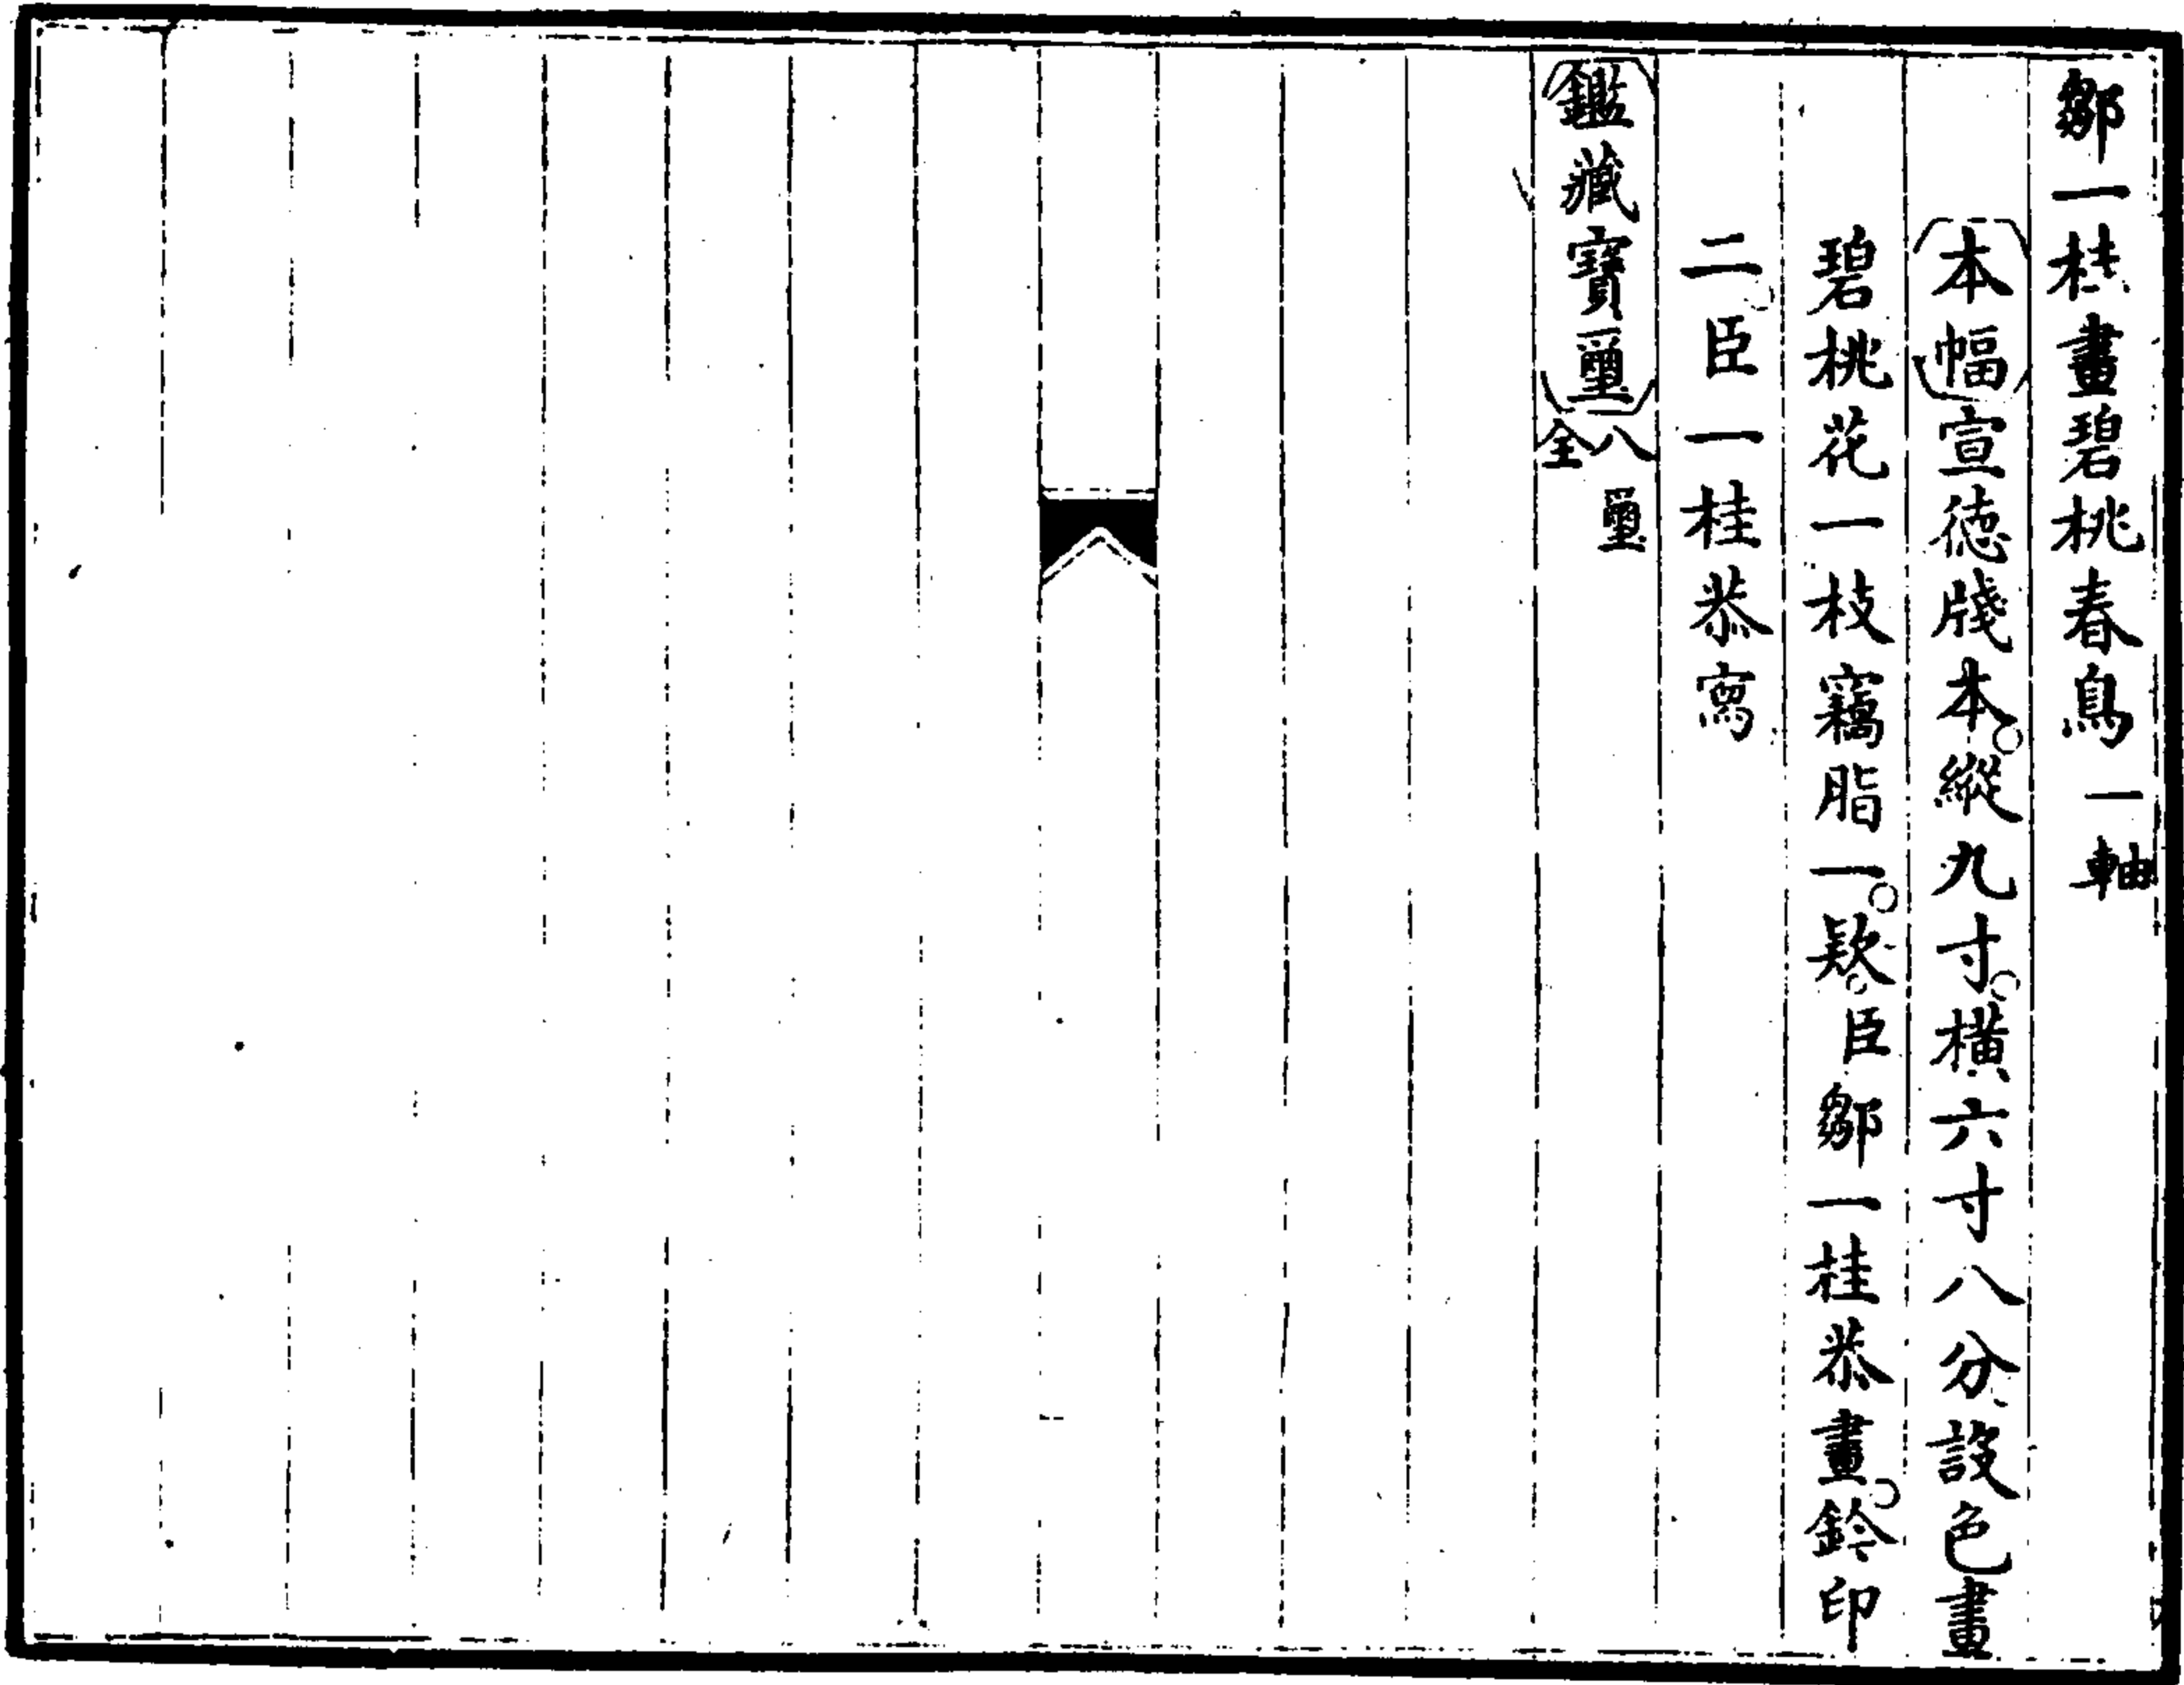 鄒一桂畫碧桃春鳥一軸
本幅宣徳牋本縱九寸橫六寸八分設色畫
碧桃花一枝竊脂一欵臣鄒一桂恭畫鈐印
二臣一桂恭寫
鑑藏寶璽八璽全